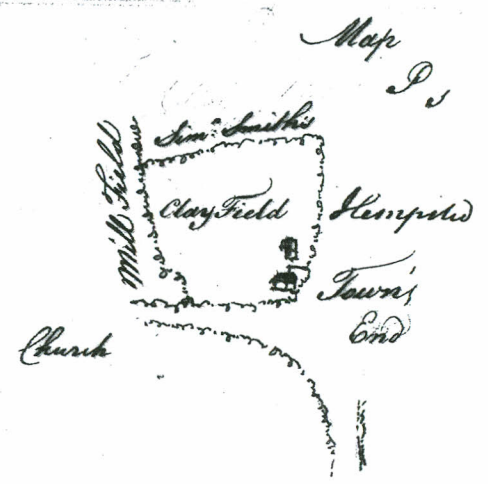 Map
P s
Simn. Smith's
Mill Field
Clay Field
Hempsted
Town's
End
Church